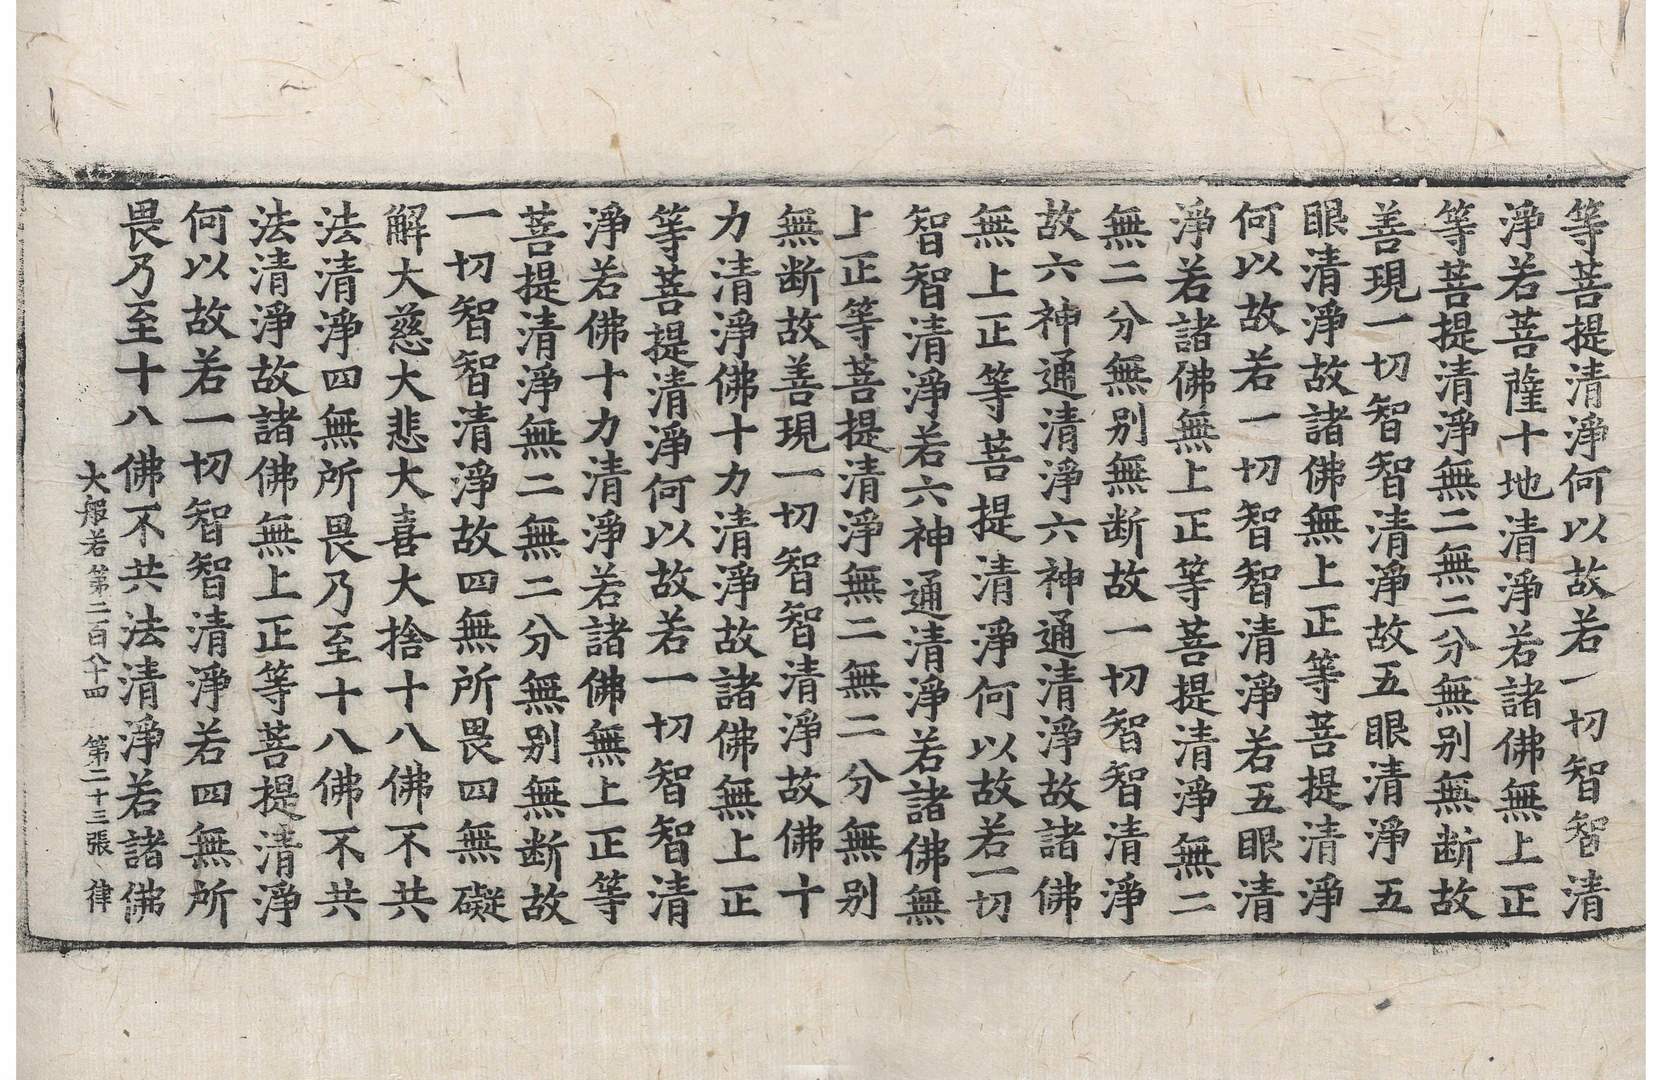 等菩提清淨何以故若一切智智清
淨若菩薩十地清淨若諸佛無上正
等菩提清淨無二無二分無別無断故
善現一切智智清淨故五眼清淨五
眼清淨故諸佛無上正等菩提清淨
何以故若一切智智清淨若五眼清
淨若諸佛無上正等菩提清淨無二
無二分無別無断故一切智智清淨
故六神通清淨六神通清淨故諸佛
無上正等菩提清淨何以故若一切
智智清淨若六神通清淨若諸佛無
上正等菩提清淨無二無二分無別
無断故善現一切智智清淨故佛十
力清淨佛十力清淨故諸佛無上正
等菩提清淨何以故若一切智智清
淨若佛十力清淨若諸佛無上正等
菩提清淨無二無二分無別無断故
一切智智清淨故四無所畏四無礙
解大慈大悲大喜大捨十八佛不共
法清淨四無所畏乃至十八佛不共
法清淨故諸佛無上正等菩提清淨
何以故若一切智智清淨若四無所
畏乃至十八佛不共法清淨若諸佛
大般若第二百八十四 第二十三張 律